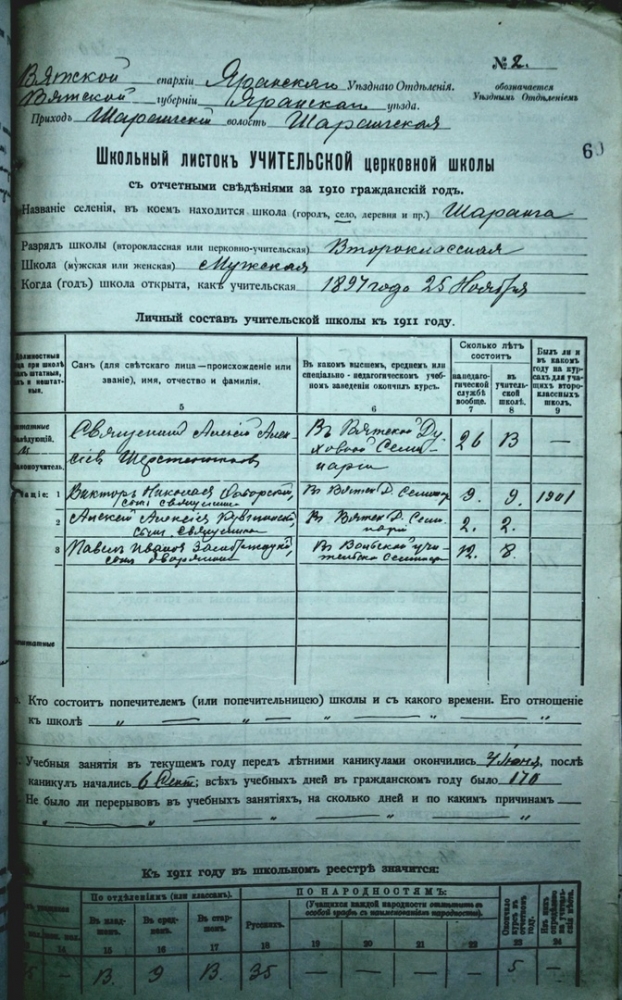 № 2.
Вятской епархіи Яранскаго Уѣзднаго Отдѣленія.
обозначается Уѣзднымъ Отдѣленіемъ
Вятской губерніи Яранскаго уѣзда.
Приходъ волость
60
Школьный листокъ УЧИТЕЛЬСКОЙ церковной школы
съ отчетными свѣдѣніями за 1910 гражданскій годъ.
Названіе селенія, въ коемъ находится школа (городъ, село, деревня и пр.) Шаранга
Разрядъ школы (второклассная или церковно-учительская) Второклассная
Школа (мужская или женская) Мужская
Когда (годъ) школа открыта, какъ учительская 1897 года 25 Ноября
Личный составъ учительской школы къ 1911 году.
Должностныя
Санъ (для свѣтскаго лица—происхожденіе или званіе), имя, отчество и фамилія.
5
Въ какомъ высшемъ, среднемъ или спеціально-педагогическомъ учебномъ заведеніи окончилъ курсъ.
6
Сколько лѣтъ состоитъ
на педагогической службѣ вообще.
7
въ учительской школѣ.
8
Былъ ли и въ какомъ году на курсахъ для учащихъ второклассныхъ школъ.
9
Священникъ Алексѣй Алексѣевъ
Въ Вятской Духовной Семинаріи
26 13 —
1 Викторъ Николаевъ
сынъ священника
Въ Вятск. Д. Семинар
9. 9. 1901
2 Алексѣй Алексѣевъ
сынъ священника
Въ Вятск. Д. Семинаріи
2. 2.
3 Павелъ Ивановъ
сынъ дворянина
12. 8.
Кто состоитъ попечителемъ (или попечительницею) школы и съ какого времени. Его отношеніе
къ школѣ „ — „ — „ — „ — „
Учебныя занятія въ текущемъ году передъ лѣтними каникулами окончились 4 Іюня, послѣ
каникулъ начались 6 Сент; всѣхъ учебныхъ дней въ гражданскомъ году было 170
Не было ли перерывовъ въ учебныхъ занятіяхъ, на сколько дней и по какимъ причинамъ —
„ — „ — „ — „ — „
Къ 1911 году въ школьномъ реестрѣ значится:
По отдѣленіямъ (или классамъ).
ПО НАРОДНОСТЯМЪ:
(Учащихся каждой народности отмѣтить въ особой графѣ съ наименованіемъ народности).
Въ млад­шемъ. Въ сред­немъ. Въ стар­шемъ. Русскихъ.
Окончило курсъ въ отчетномъ году.
14 15 16 17 18 19 20 21 22 23 24
— 13. 9 13. 35 — — — — 5 —